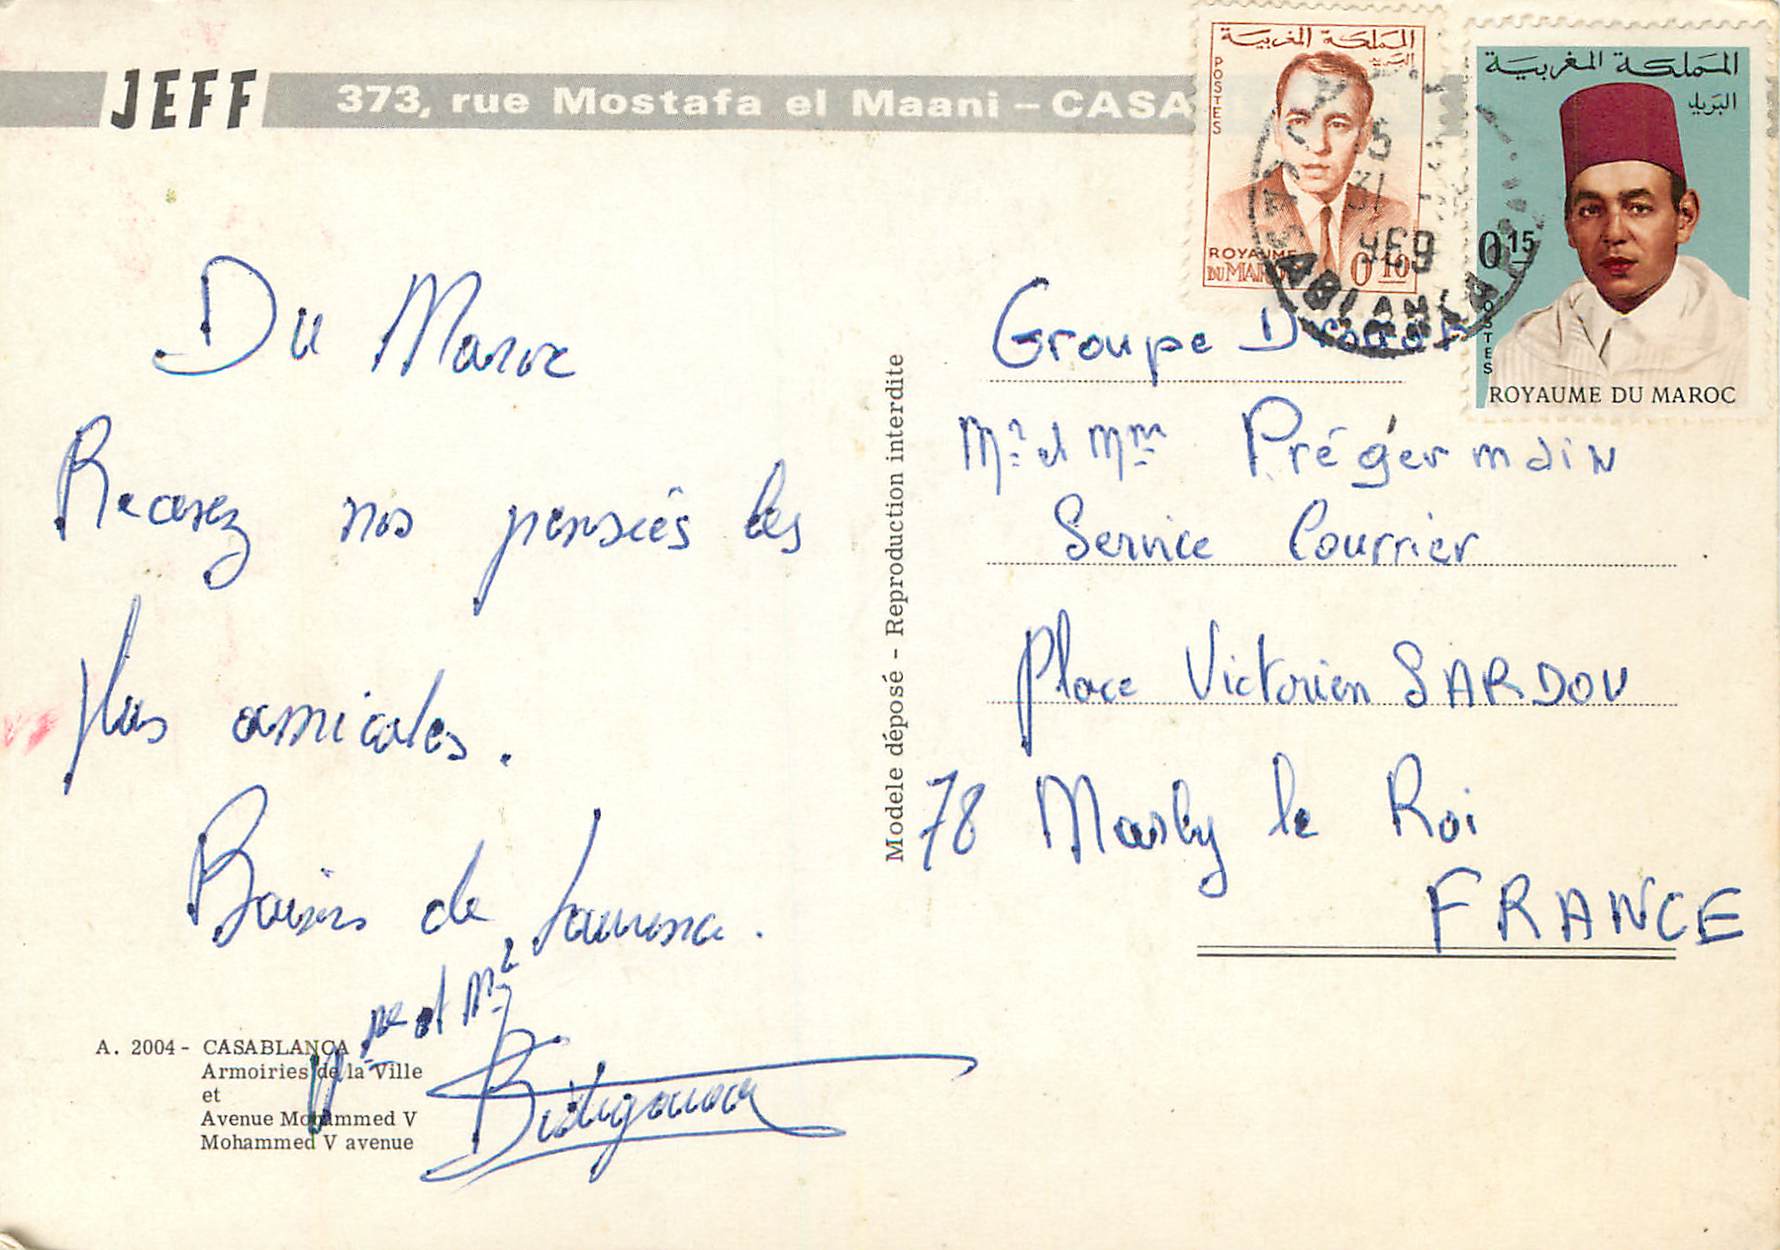 JEFF 373, rue Mostafa el Maani – CASA
المملكة المغربية
البريد
POSTES
ROYAUME
DU MAROC
0 10
المملكة المغربية
البريد
0 15
POSTES
ROYAUME DU MAROC
CASABLANCA
15
31
Du Maroc
Recevez nos pensées les
plus amicales.
Baisers de
et Mr
A. 2004 - CASABLANCA
Armoiries de la Ville
et
Avenue Mohammed V
Mohammed V avenue
Modele déposé - Reproduction interdite
Groupe
Mr et Mme Prégermain
Service Courrier
Place Victorien SARDOU
78 Marly le Roi
FRANCE